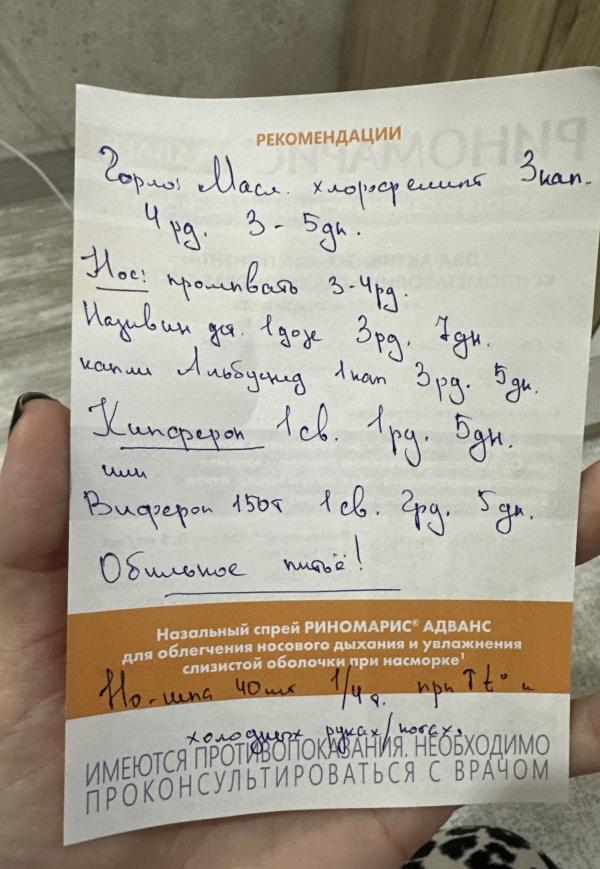 РЕКОМЕНДАЦИИ
Горло: Масл. хлорофиллипт 3 кап.
4 рд. 3 - 5 дн.
Нос: промывать 3-4 рд.
Називин дет. 1 дозе 3 рд. 7 дн.
капли Альбуцид 1 кап 3 рд. 5 дн.
Кипферон 1 св. 1 рд. 5 дн.
или
Виферон 150т 1 св. 2 рд. 5 дн.
Обильное питьё!
Назальный спрей РИНОМАРИС® АДВАНС
для облегчения носового дыхания и увлажнения
слизистой оболочки при насморке¹
Но-шпа 40мг 1/4 т. при ↑ t° и
холодных руках/ногах.
ИМЕЮТСЯ ПРОТИВОПОКАЗАНИЯ. НЕОБХОДИМО
ПРОКОНСУЛЬТИРОВАТЬСЯ С ВРАЧОМ